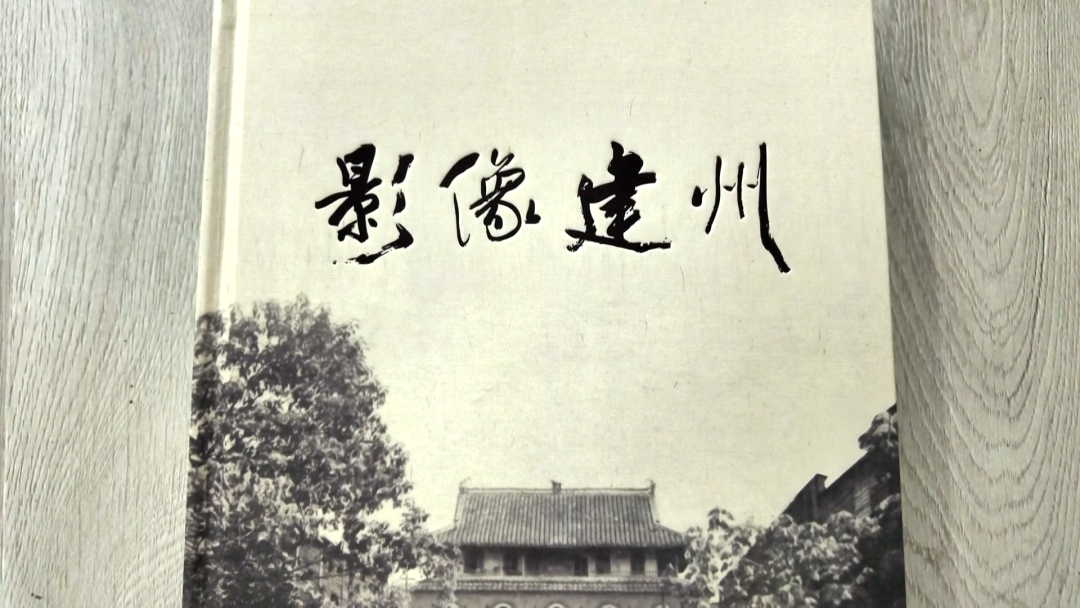 影像建州